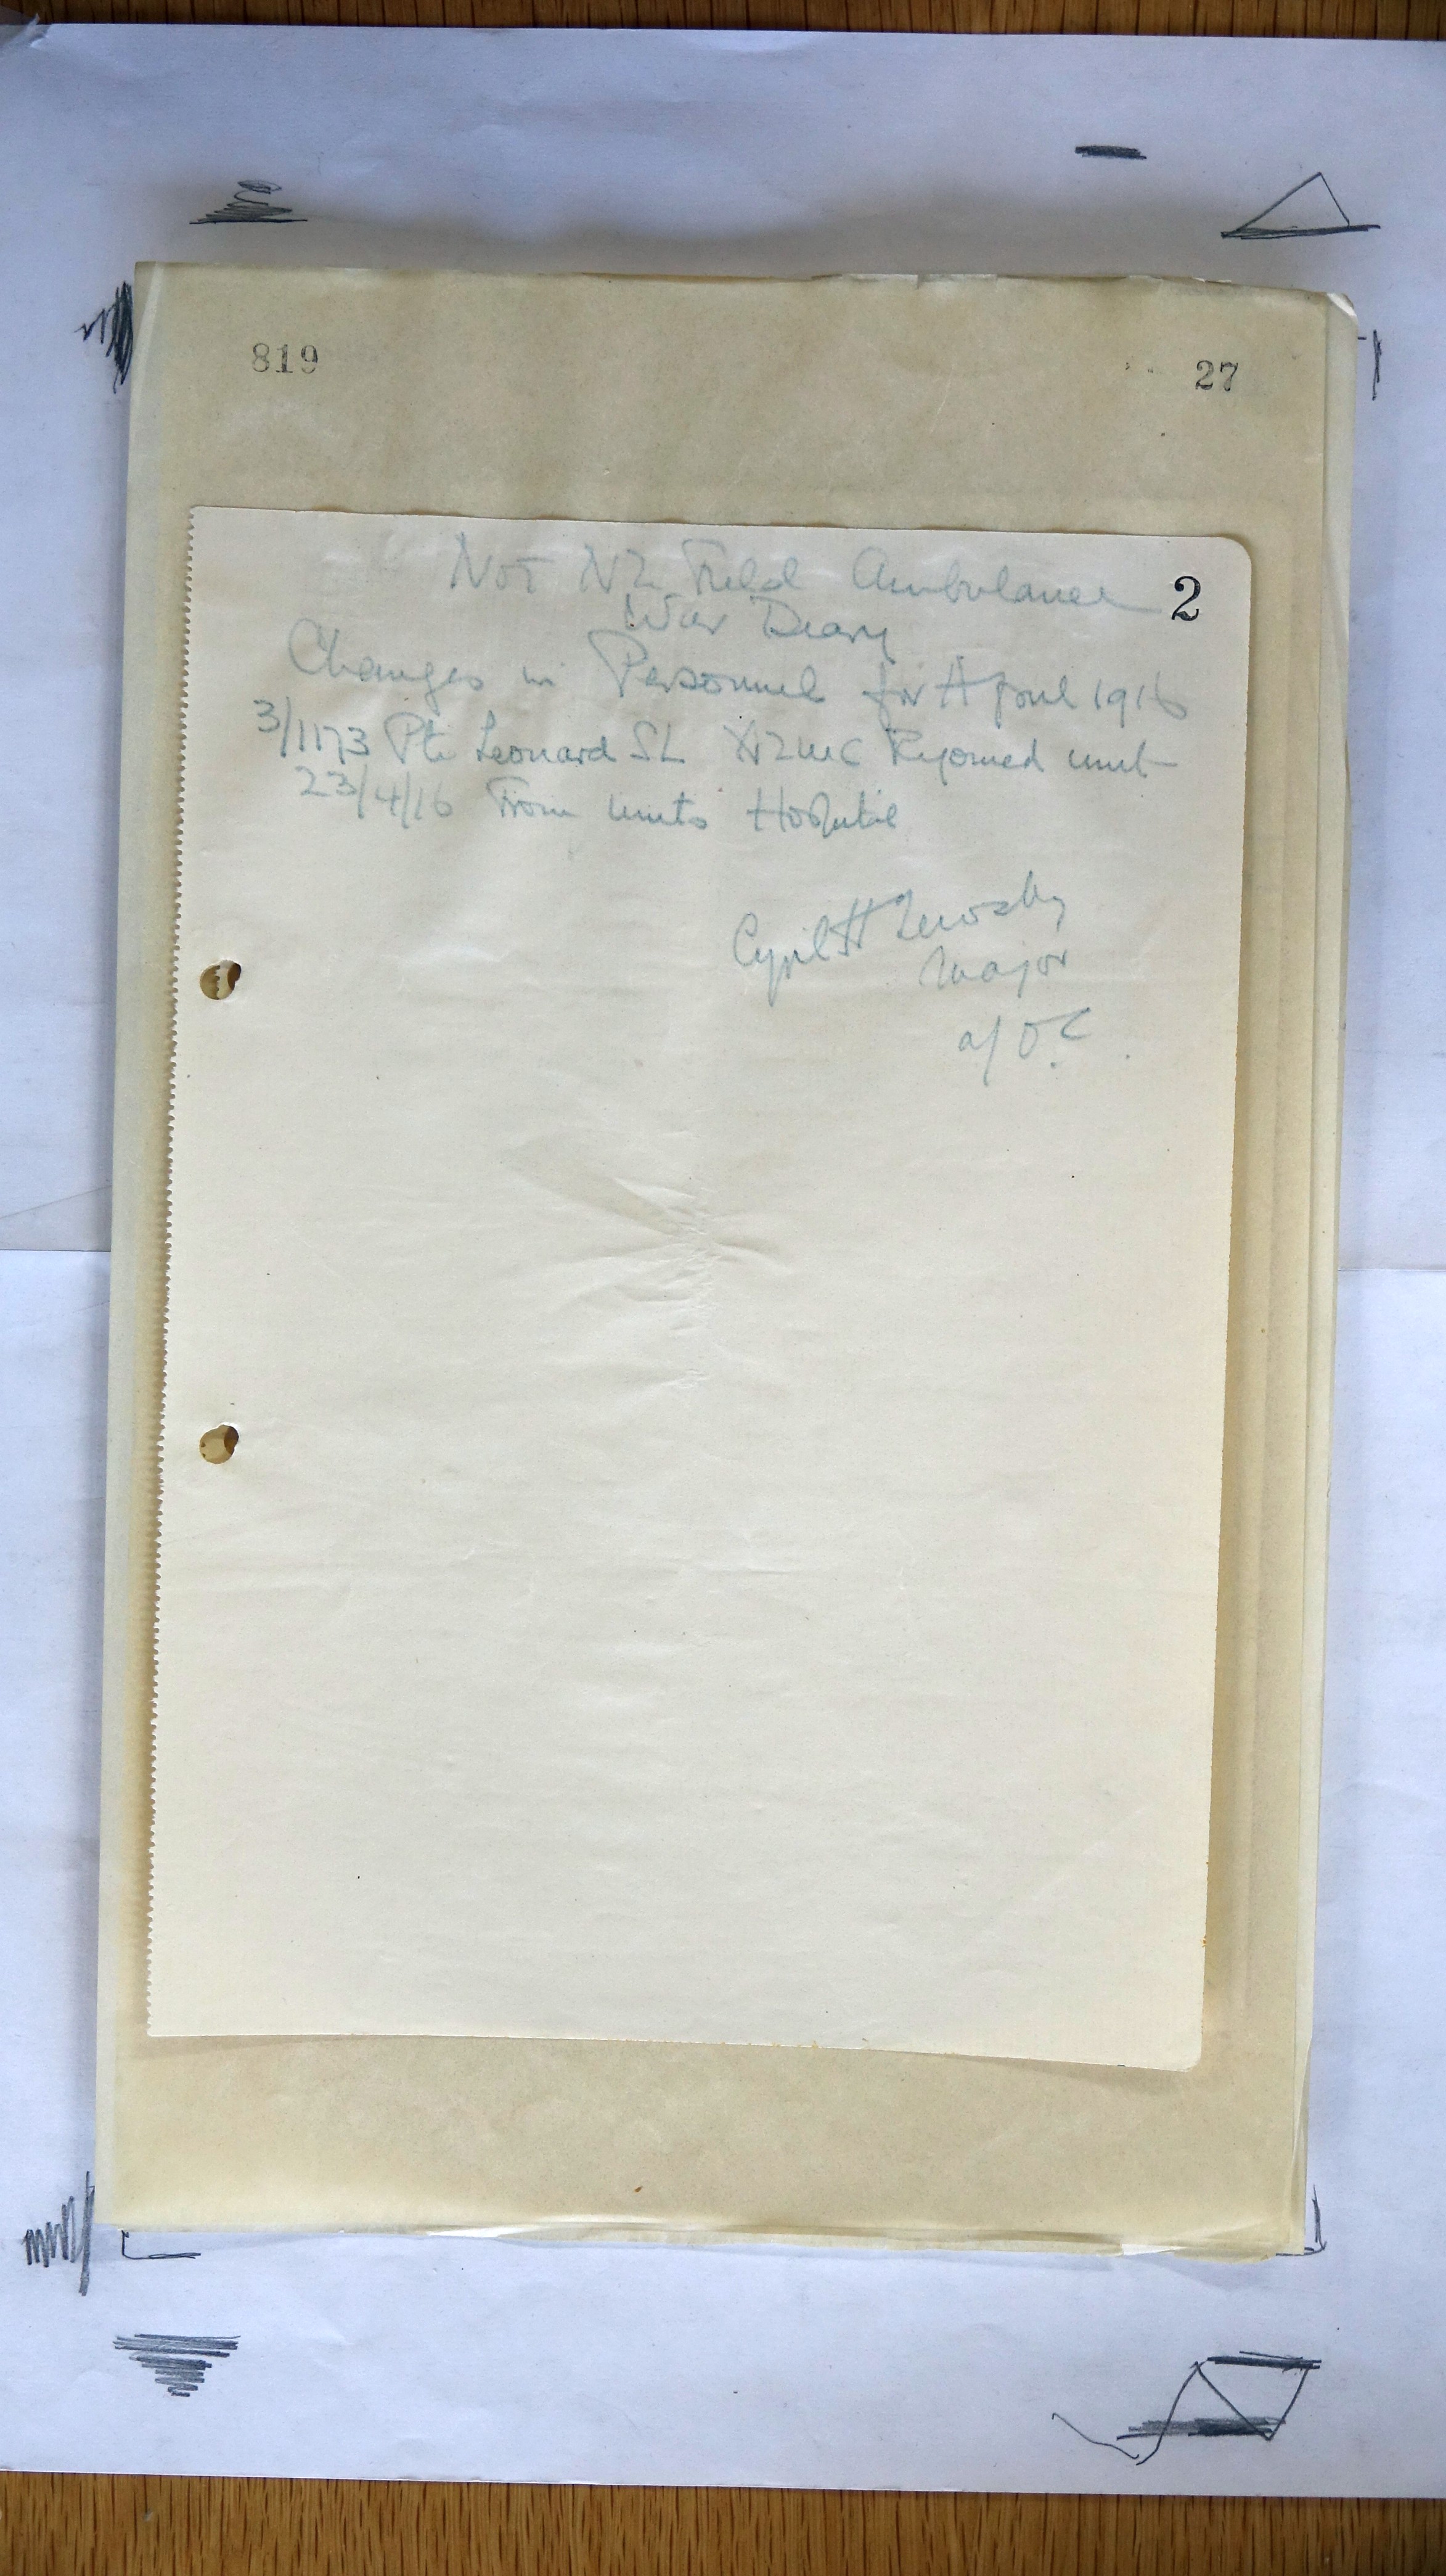 819
27
2
No 1 NZ Field Ambulance
War Diary
Changes in Personnel for April 1916
3/1173 Pte Leonard SL NZMC Rejoined unit
23/4/16 From units Hospital
Cyril H
Major
a/ O.C.